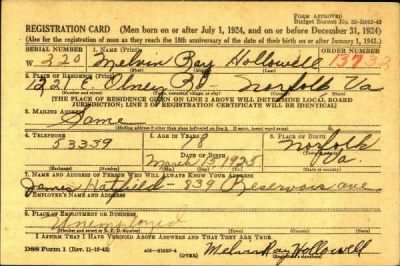 FORM APPROVED
REGISTRATION CARD—(Men born on or after July 1, 1924, and on or before December 31, 1924)
(Also for the registration of men as they reach the 18th anniversary of the date of their birth on or after January 1, 1943.)
SERIAL NUMBER 1. NAME (Print) ORDER NUMBER
W 220 Melvin Ray Hollowell 13733
2. PLACE OF RESIDENCE (Print)
122 E Olney Rd Norfolk Va
[THE PLACE OF RESIDENCE GIVEN ON LINE 2 ABOVE WILL DETERMINE LOCAL BOARD
JURISDICTION; LINE 2 OF REGISTRATION CERTIFICATE WILL BE IDENTICAL]
3. MAILING ADDRESS
Same
4. TELEPHONE 5. AGE IN YEARS 6. PLACE OF BIRTH
53339 18 Norfolk
DATE OF BIRTH
March 13 1925 Va.
7. NAME AND ADDRESS OF PERSON WHO WILL ALWAYS KNOW YOUR ADDRESS
James Hatfield - 839 Reservoir ave
8. EMPLOYER'S NAME AND ADDRESS
9. PLACE OF EMPLOYMENT OR BUSINESS
Unemployed
I AFFIRM THAT I HAVE VERIFIED ABOVE ANSWERS AND THAT THEY ARE TRUE.
DSS Form 1 (Rev. 11-16-42) (OVER) Melvin Ray Hollowell